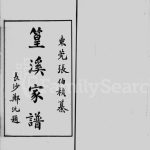 東莞張伯楨纂
篁溪家譜
長沙鄭沅題
FamilySearch